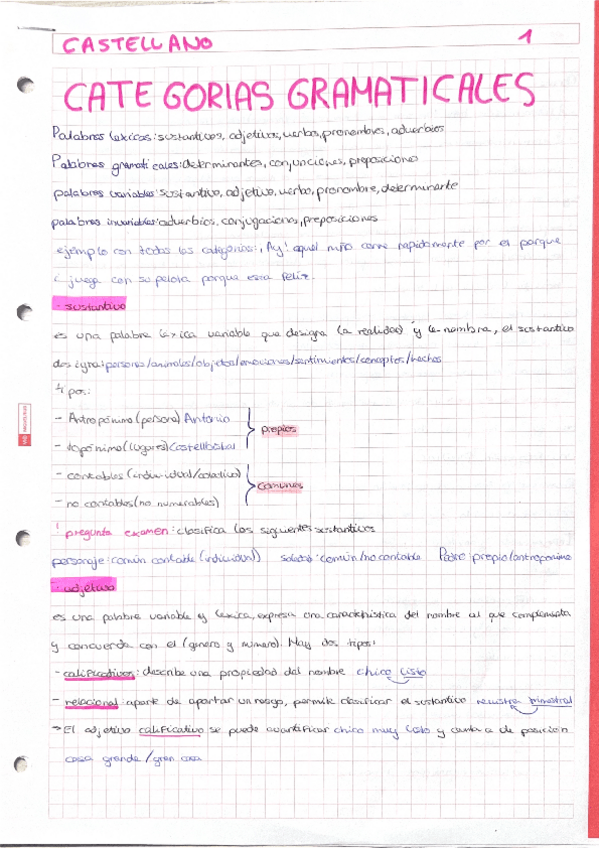 CASTELLANO 1
CATEGORIAS GRAMATICALES
Palabras lexicas: sustantivos, adjetivos, verbos, pronombres, adverbios
Palabras gramaticales: determinantes, conjunciones, preposiciones
palabras variables: sustantivo, adjetivo, verbo, pronombre, determinante
palabras invariables: adverbios, conjugaciones, preposiciones
ejemplo con todas las categorias: ¡Ay! aquel niño corre rapidamente por el parque
y juega con su pelota porque esta feliz.
- sustantivo
es una palabra lexica variable que designa la realidad y le nombra, el sustantivo
designa: personas/animales/objetos/emociones/sentimientos/conceptos/hechos
tipos:
- Antropónimo (persona) Antonio
propios
- topónimo (lugares) Castellbisbal
- contables (individual/colectivo)
comunes
- no contables (no numerables)
! pregunta examen: clasifica los siguientes sustantivos
personaje: común contable (individual) soledad: común/no contable Pedro: propio/antroponimo
- adjetivo
es una palabra variable y lexica, expresa una caracteristica del nombre al que complementa
y concuerda con el (genero y numero). Hay dos tipos:
- calificativos: describe una propiedad del nombre chico listo
- relacional: aparte de aportar un rasgo, permite clasificar el sustantivo revista trimestral
→ El adjetivo calificativo se puede cuantificar chico muy listo y cambia de posición
casa grande / gran casa